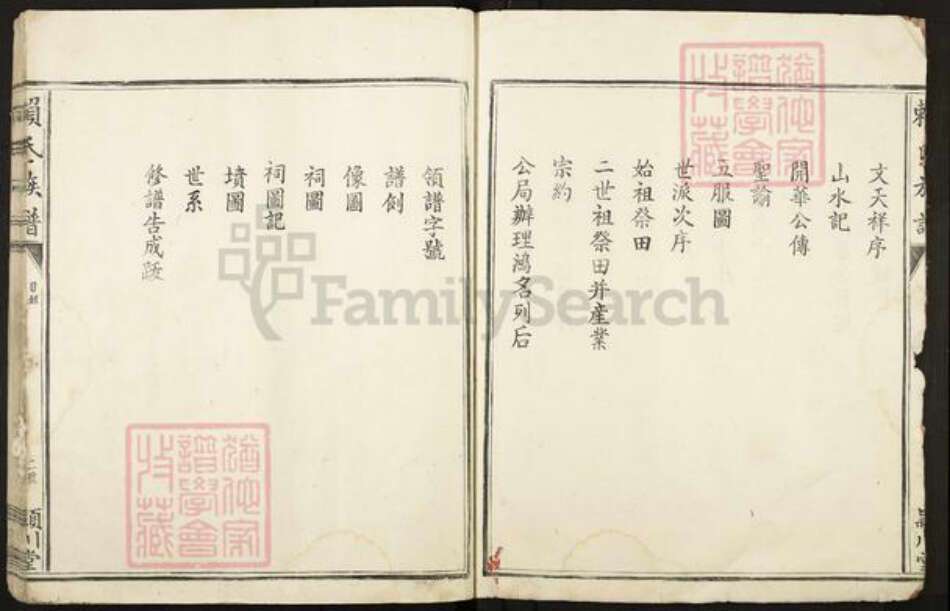 文天祥序
山水記
開華公傳
聖諭
五服圖
世派次序
始祖祭田
二世祖祭田并產業
宗約
公局辦理鴻名列后
領譜字號
譜例
像圖
祠圖
祠圖記
墳圖
世系
修譜告成跋
賴氏族譜
目錄
潁川堂
FamilySearch